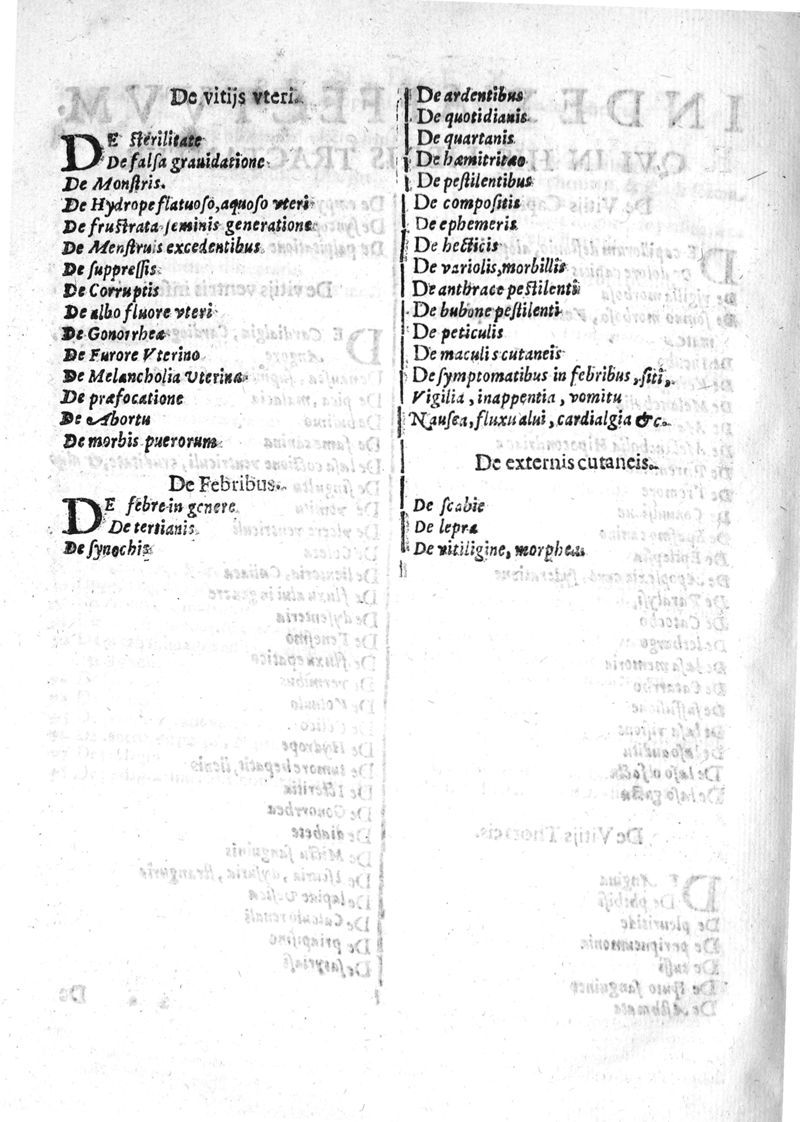 De vitijs vteri.
DE sterilitate
De falsa grauidatione
De Monstris.
De Hydrope flatuoso, aquoso vteri
De frustrata seminis generatione
De Menstruis excedentibus
De suppressis
De Corruptis
De albo fluore vteri
De Gonorrhea
De Furore Vterino
De Melancholia Vterina
De præfocatione
De Abortu
De morbis puerorum
De Febribus.
DE febre in genere
De tertianis
De synochis
De ardentibus
De quotidianis
De quartanis
De hæmitritæo
De pestilentibus
De compositis
De ephemeris
De hecticis
De variolis, morbillis
De anthrace pestilenti
De bubone pestilenti
De peticulis
De maculis cutaneis
De symptomatibus in febribus, siti,
Vigilia, inappentia, vomitu
Nausea, fluxu alui, cardialgia &c.
De externis cutaneis.
De scabie
De lepra
De vitiligine, morphea